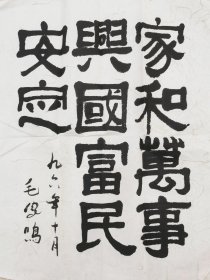 家和萬事
興國富民
安定
九六年十月
毛俊鳴